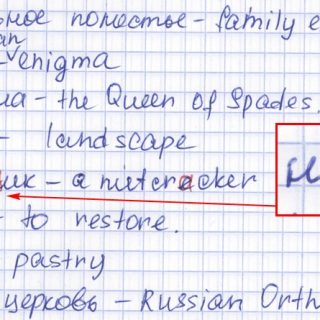 ьное поместье - family e
an
- enigma
ма - the Queen of Spades.
- landscape
ик - a nutcracker
- to restore.
pastry
церковь - Russian Orth